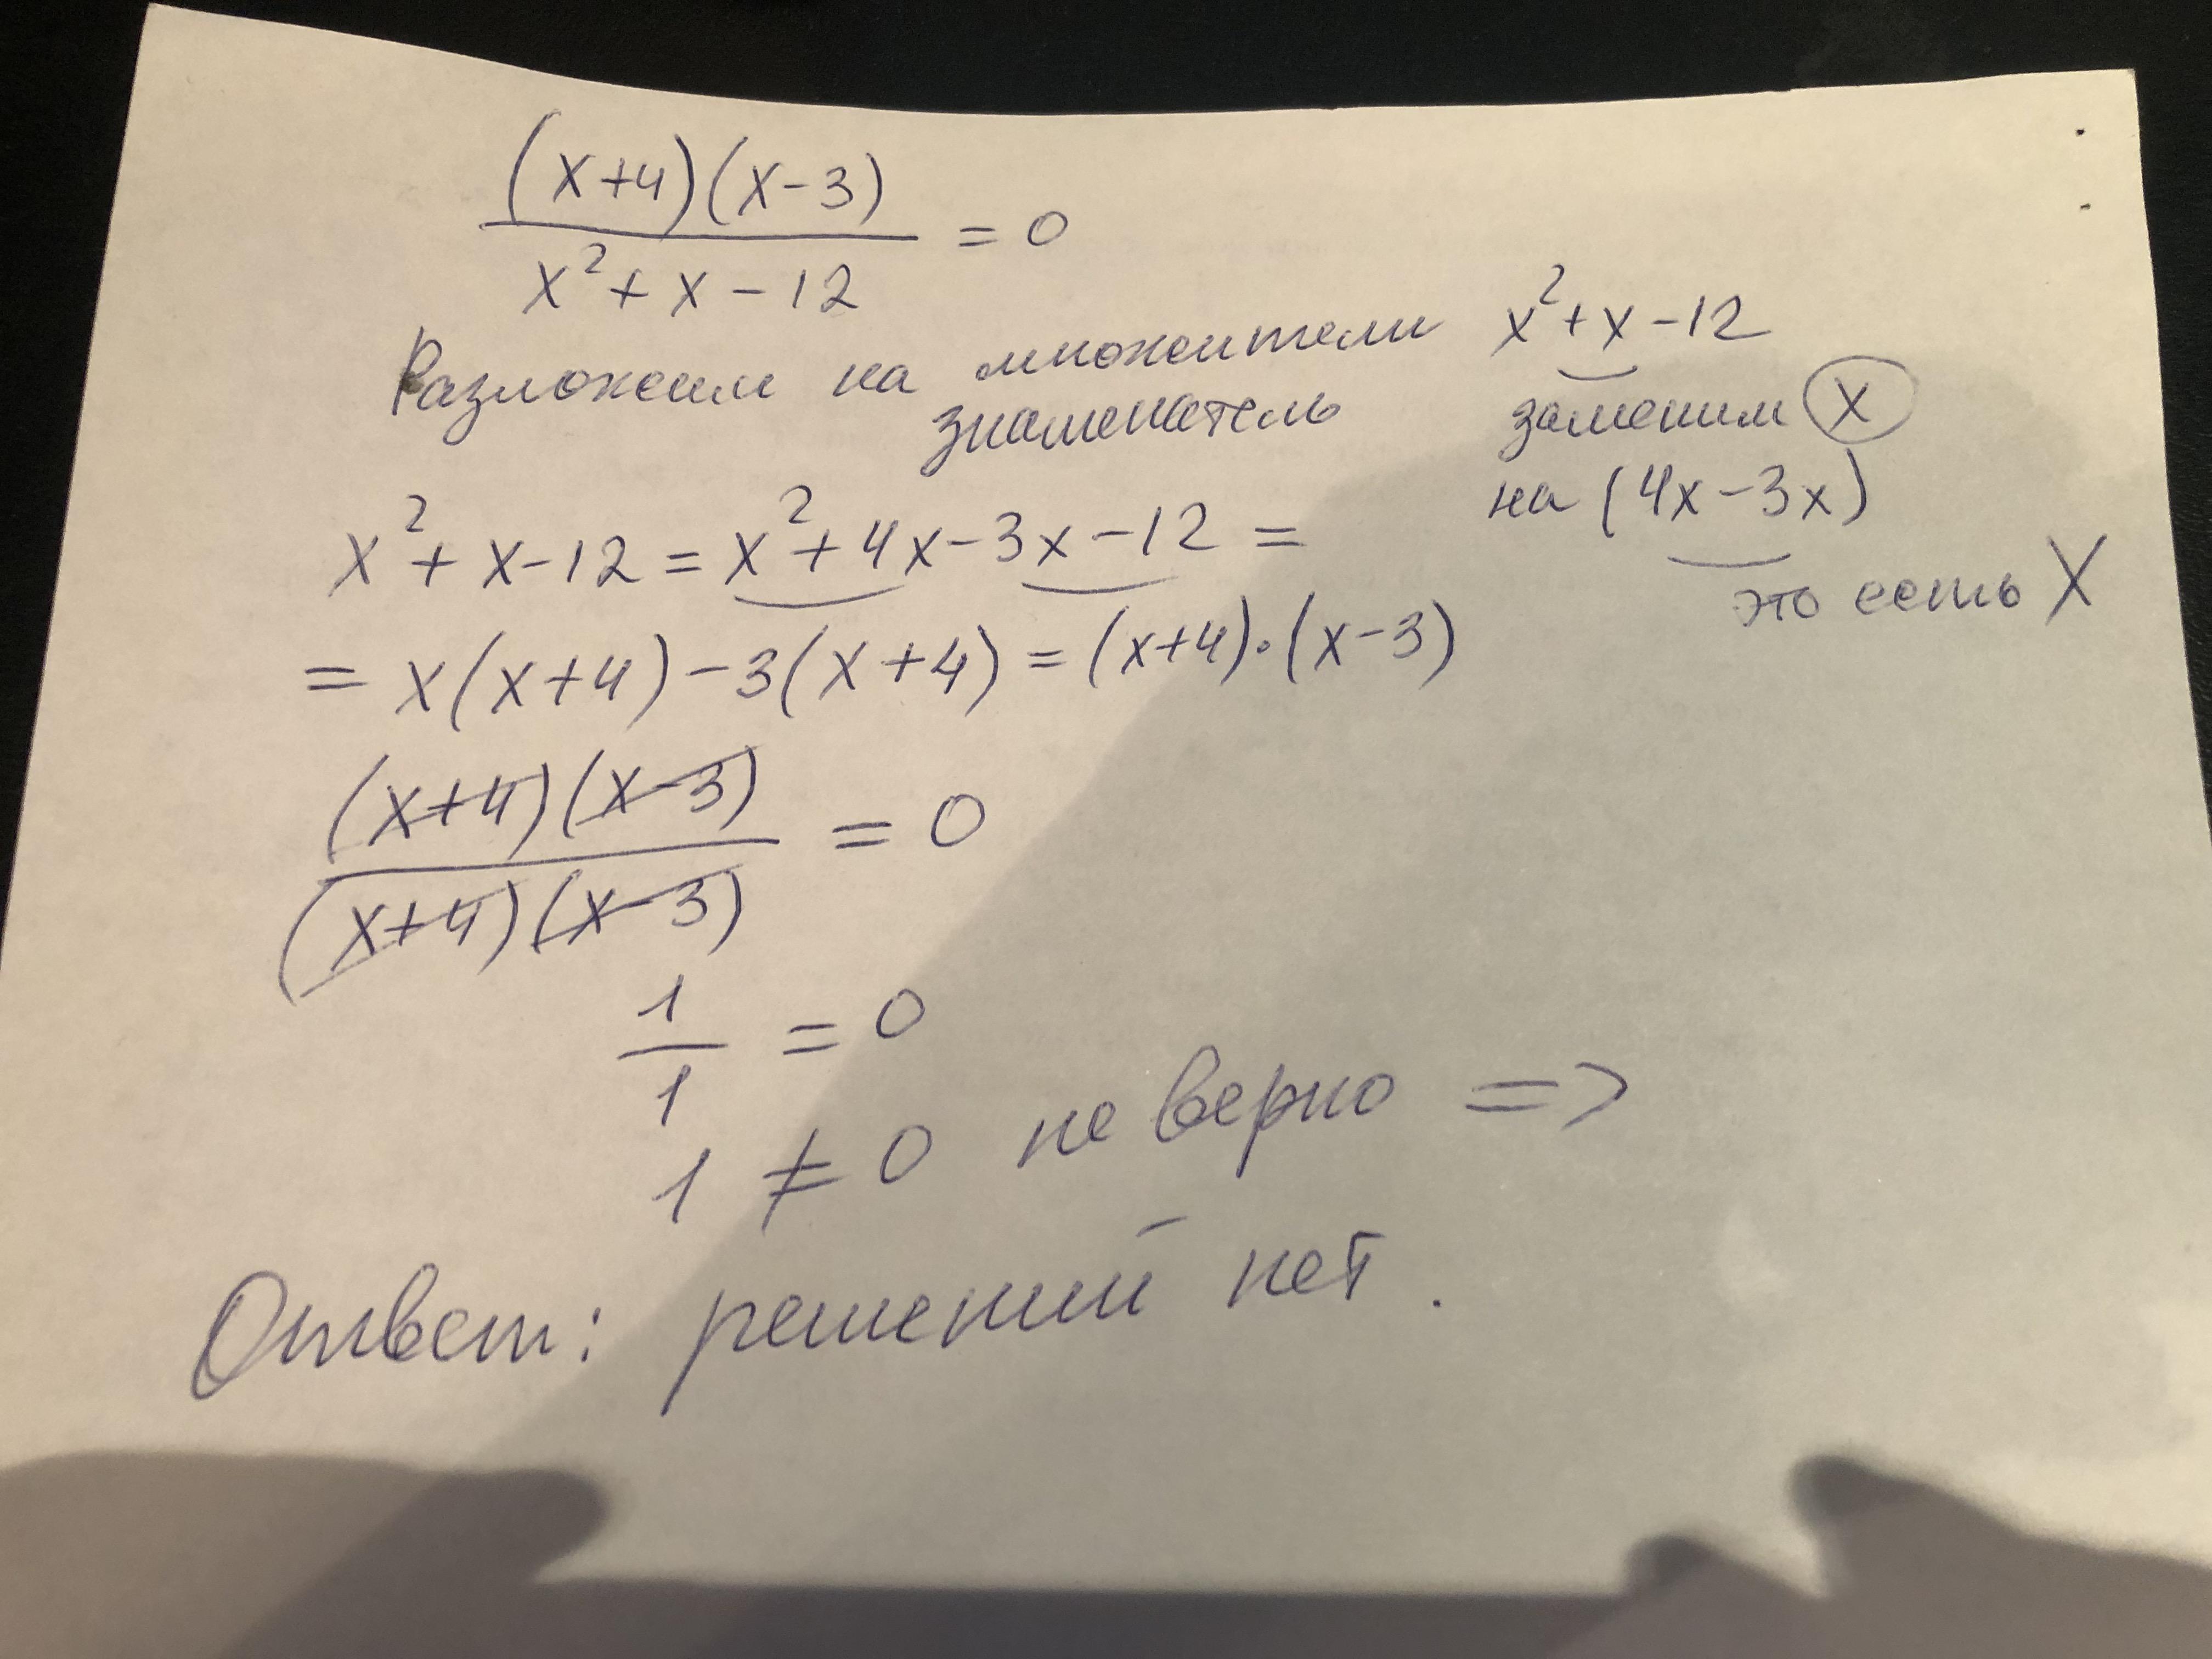 (x+4)(x-3)
――――――― = 0
x²+x-12
Разложим на множители
знаменатель
x²+x-12
заменим x
на (4x-3x)
это есть X
x²+x-12=x²+4x-3x-12=
=x(x+4)-3(x+4)=(x+4)·(x-3)
(x+4)(x-3)
――――――― = 0
(x+4)(x-3)
1
― = 0
1
1 ≠ 0 не верно =>
Ответ: решений нет.